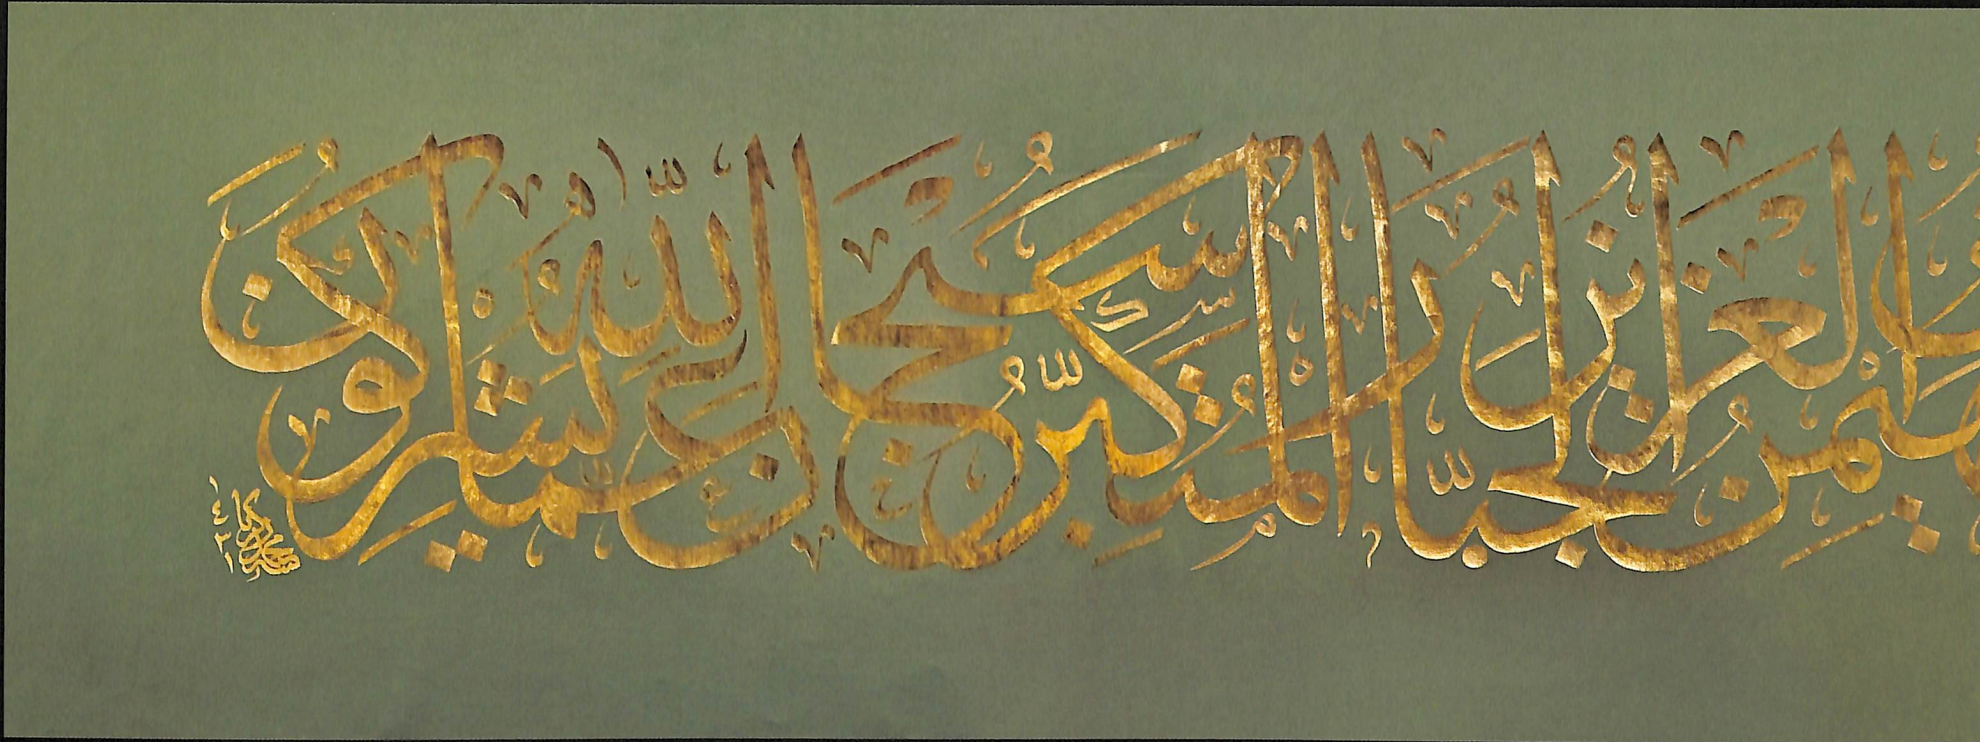 المهيمن العزيز الجبار المتكبر سبحان الله عما يشركون
١٤٣١